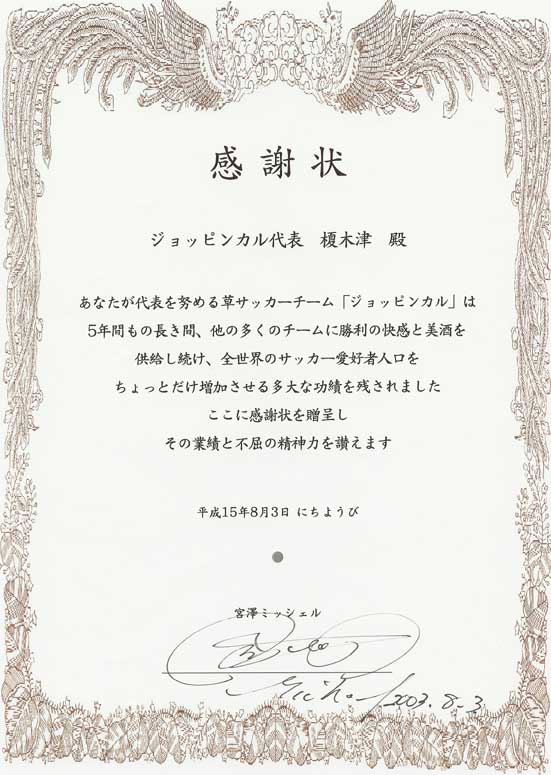 感謝状
ジョッピンカル代表 榎木津 殿
あなたが代表を努める草サッカーチーム「ジョッピンカル」は
5年間もの長き間、他の多くのチームに勝利の快感と美酒を
供給し続け、全世界のサッカー愛好者人口を
ちょっとだけ増加させる多大な功績を残されました
ここに感謝状を贈呈し
その業績と不屈の精神力を讃えます
平成15年8月3日 にちようび
宮澤ミッシェル
2003.8-3